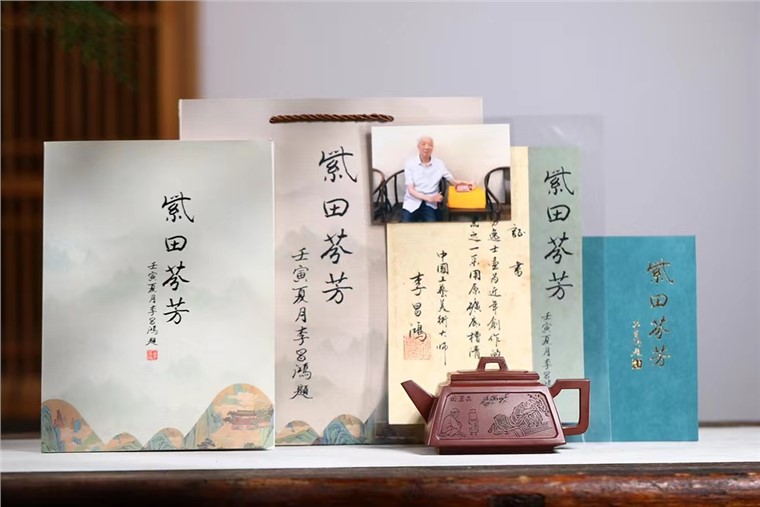 紫田芬芳
壬寅夏月李昌鸿题
紫田芬芳
壬寅夏月李昌鸿题
证书
逸士壶为近年创作的
品之一采用原矿底槽清
中国工艺美术大师
李昌鸿
紫田芬芳
壬寅夏月李昌鸿题
紫田芬芳